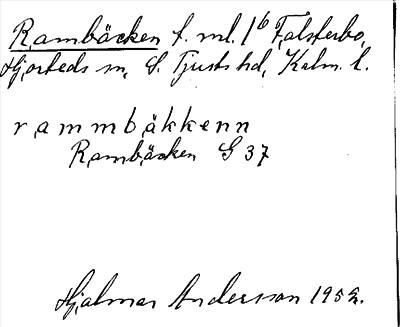 Rambäcken t. ml. 1⁶ Falsterbo,
Hjorteds sn, S. Tjusts hd, Kalm. l.
rammbäkkenn
Rambäcken G 37
Hjalmar Andersson 1952.